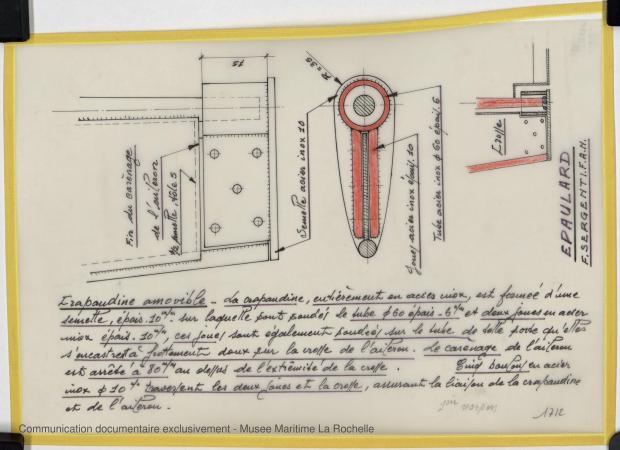 75
R = 35
Fin du carénage
de l'aileron
Semelle acier inox 10
Joues acier inox épais. 10
Tube acier inox φ 60 épais. 5
Crosse
EPAULARD
F. SERGENT I.F.A.N.
Crapaudine amovible - La crapaudine, entièrement en acier inox, est formée d'une
semelle, épais. 10 m/m sur laquelle sont soudés le tube φ 60 épais. 5 m/m et deux joues en acier
inox épais. 10 m/m, ces joues sont également soudées sur le tube de telle sorte qu'elles
s'encastrent à frottement doux sur la crosse de l'aileron. Le carénage de l'aileron
est arrêté à 80 m/m au dessus de l'extrémité de la crosse. Cinq boulons en acier
inox φ 10 m/m traversent les deux joues et la crosse, assurant la liaison de la crapaudine
et de l'aileron.
1712
Communication documentaire exclusivement - Musee Maritime La Rochelle